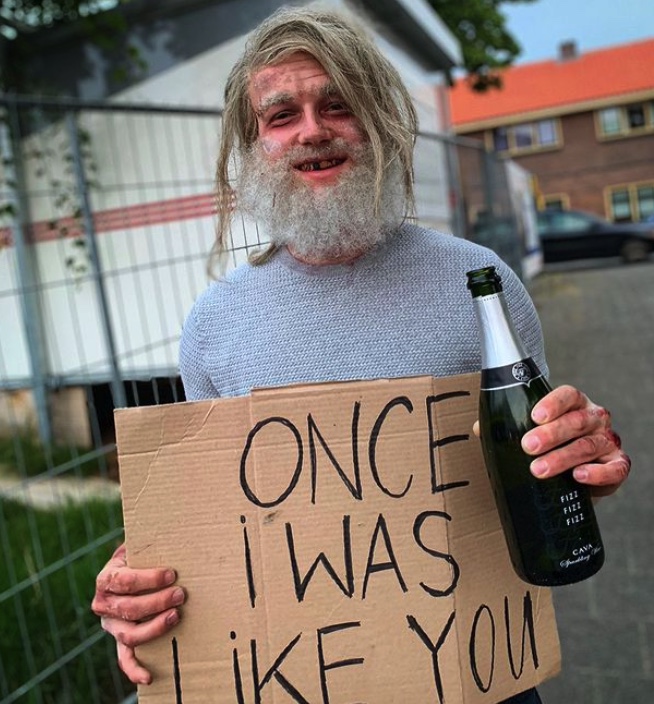 ONCE
i WAS
LiKE YOU
FIZZ
FIZZ
FIZZ
CAVA
Sparkling Wine